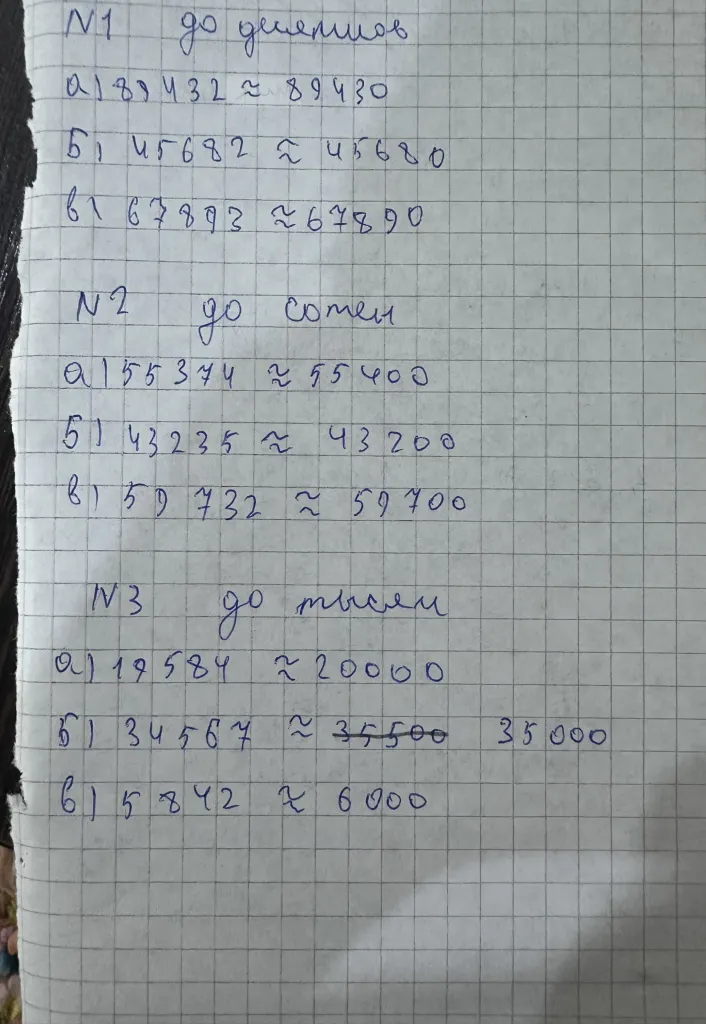 N1 до десятков
а) 89432 ≈ 89430
Б) 45682 ≈ 45680
в) 67893 ≈ 67890
N2 до сотен
а) 55374 ≈ 55400
Б) 43235 ≈ 43200
в) 59732 ≈ 59700
N3 до тысяч
а) 19584 ≈ 20000
Б) 34567 ≈ 35500 35000
в) 5842 ≈ 6000